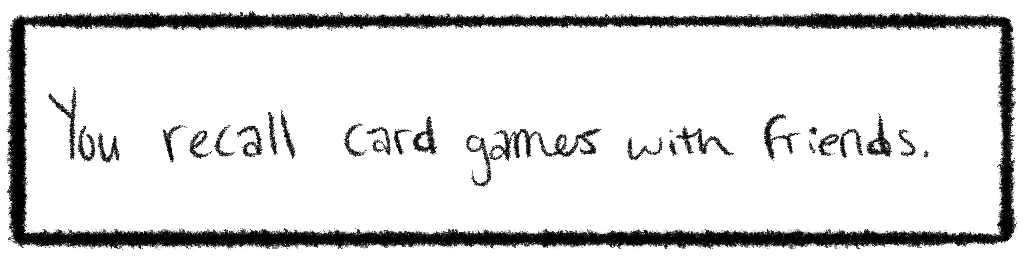 You recall card games with friends.